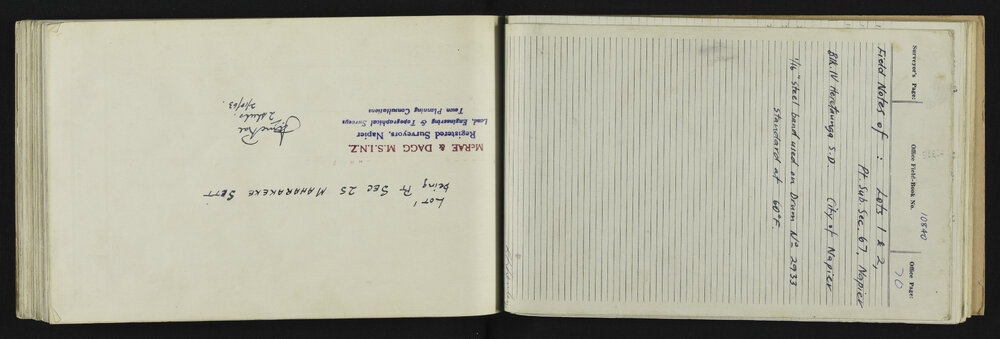 Lot 1
being Pt Sec 25 MAHARAKEKE SETT
McRAE & DAGG M.S.I.N.Z.
Registered Surveyors, Napier
Land, Engineering & Topographical Surveys
Town Planning Consultations
2/10/63.
Surveyor's Page:
Office Field-Book No. 10840
Office Page: 70
Field Notes of : Lots 1 & 2,
Pt. Sub. Sec. 67, Napier
Blk. IV Heretaunga S.D. City of Napier
1/16" Steel band used on Drum No 2933
Standard at 60°F.